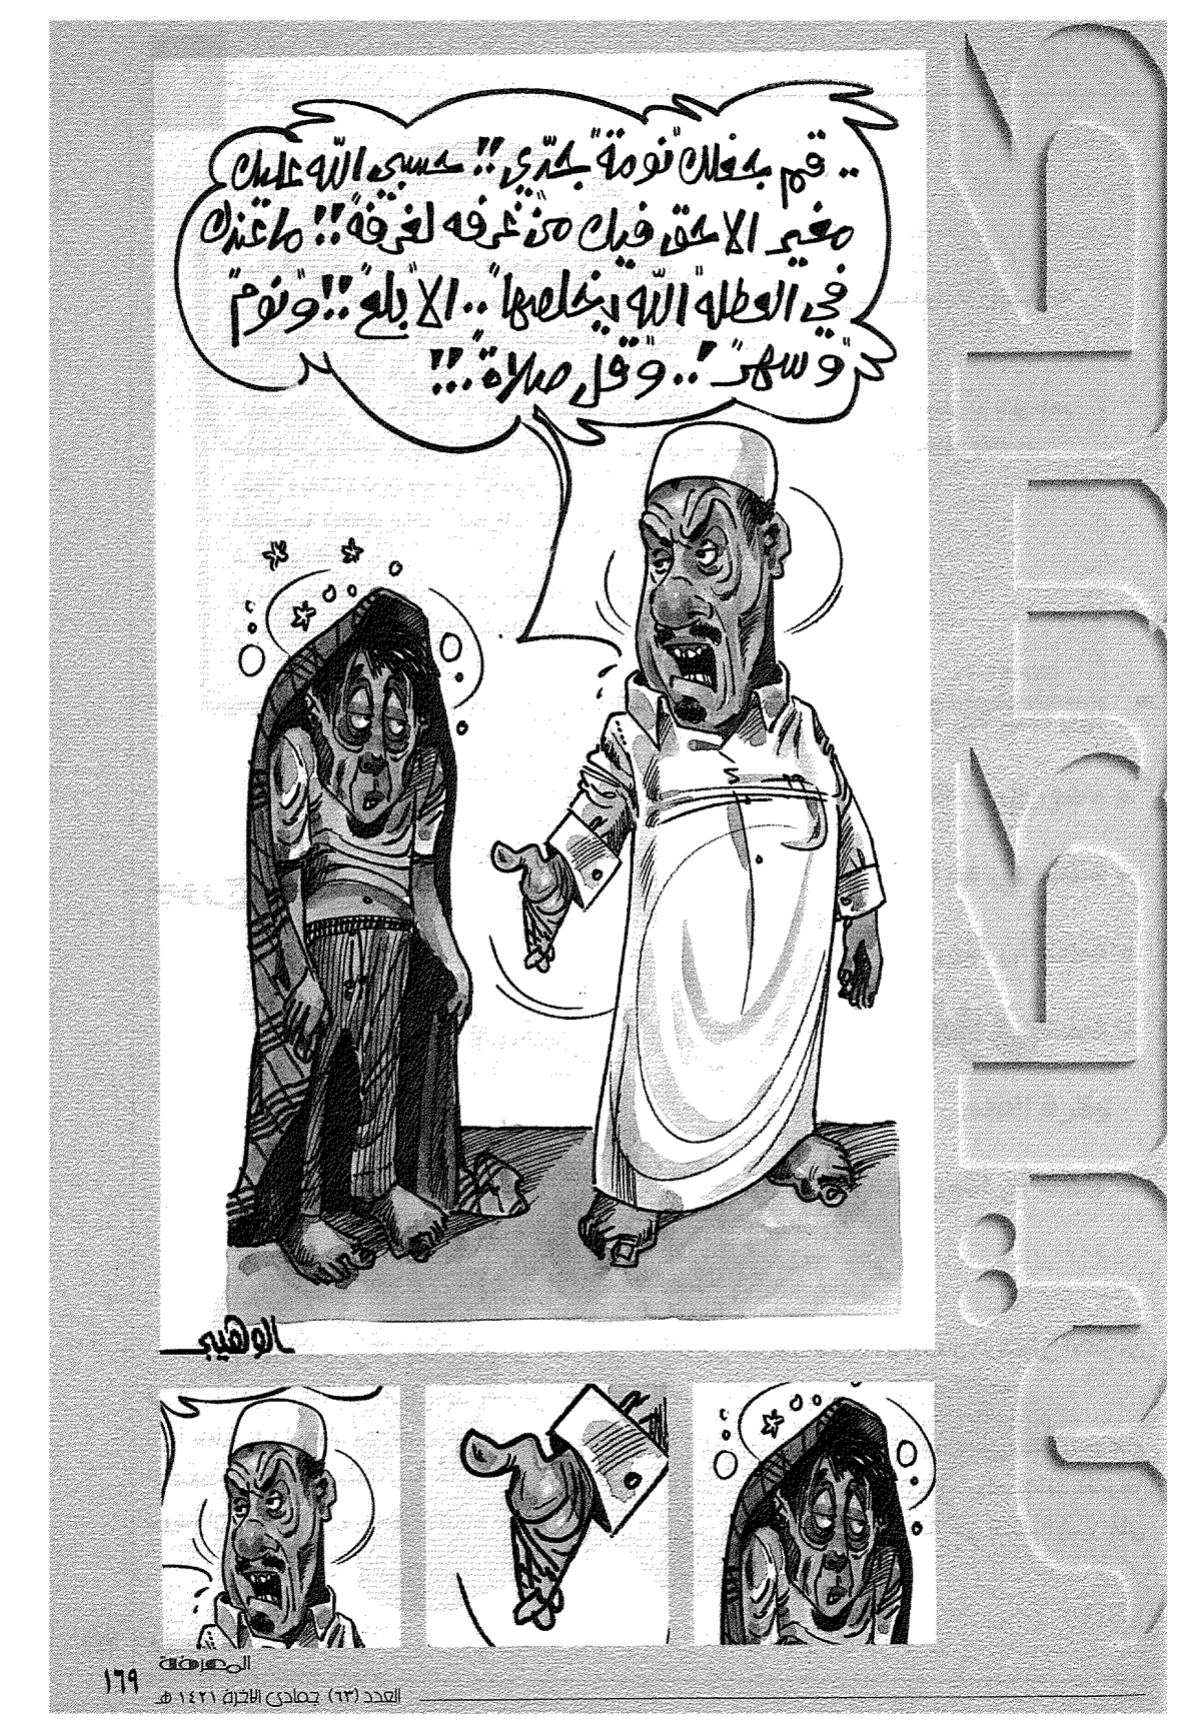 .. قم جعلك نومة جدّي !! حسبي الله عليك
مغير الاحق فيك من غرفه لغرفة !! ما عندك
في العطله الله يخلصها .. الا بلع !! ونوم
وسهر !.. وقل صلاة ..!!
الوهيبي
المعرفة
العدد (٦٣) جمادى الآخرة ١٤٢١ هـ
١٦٩